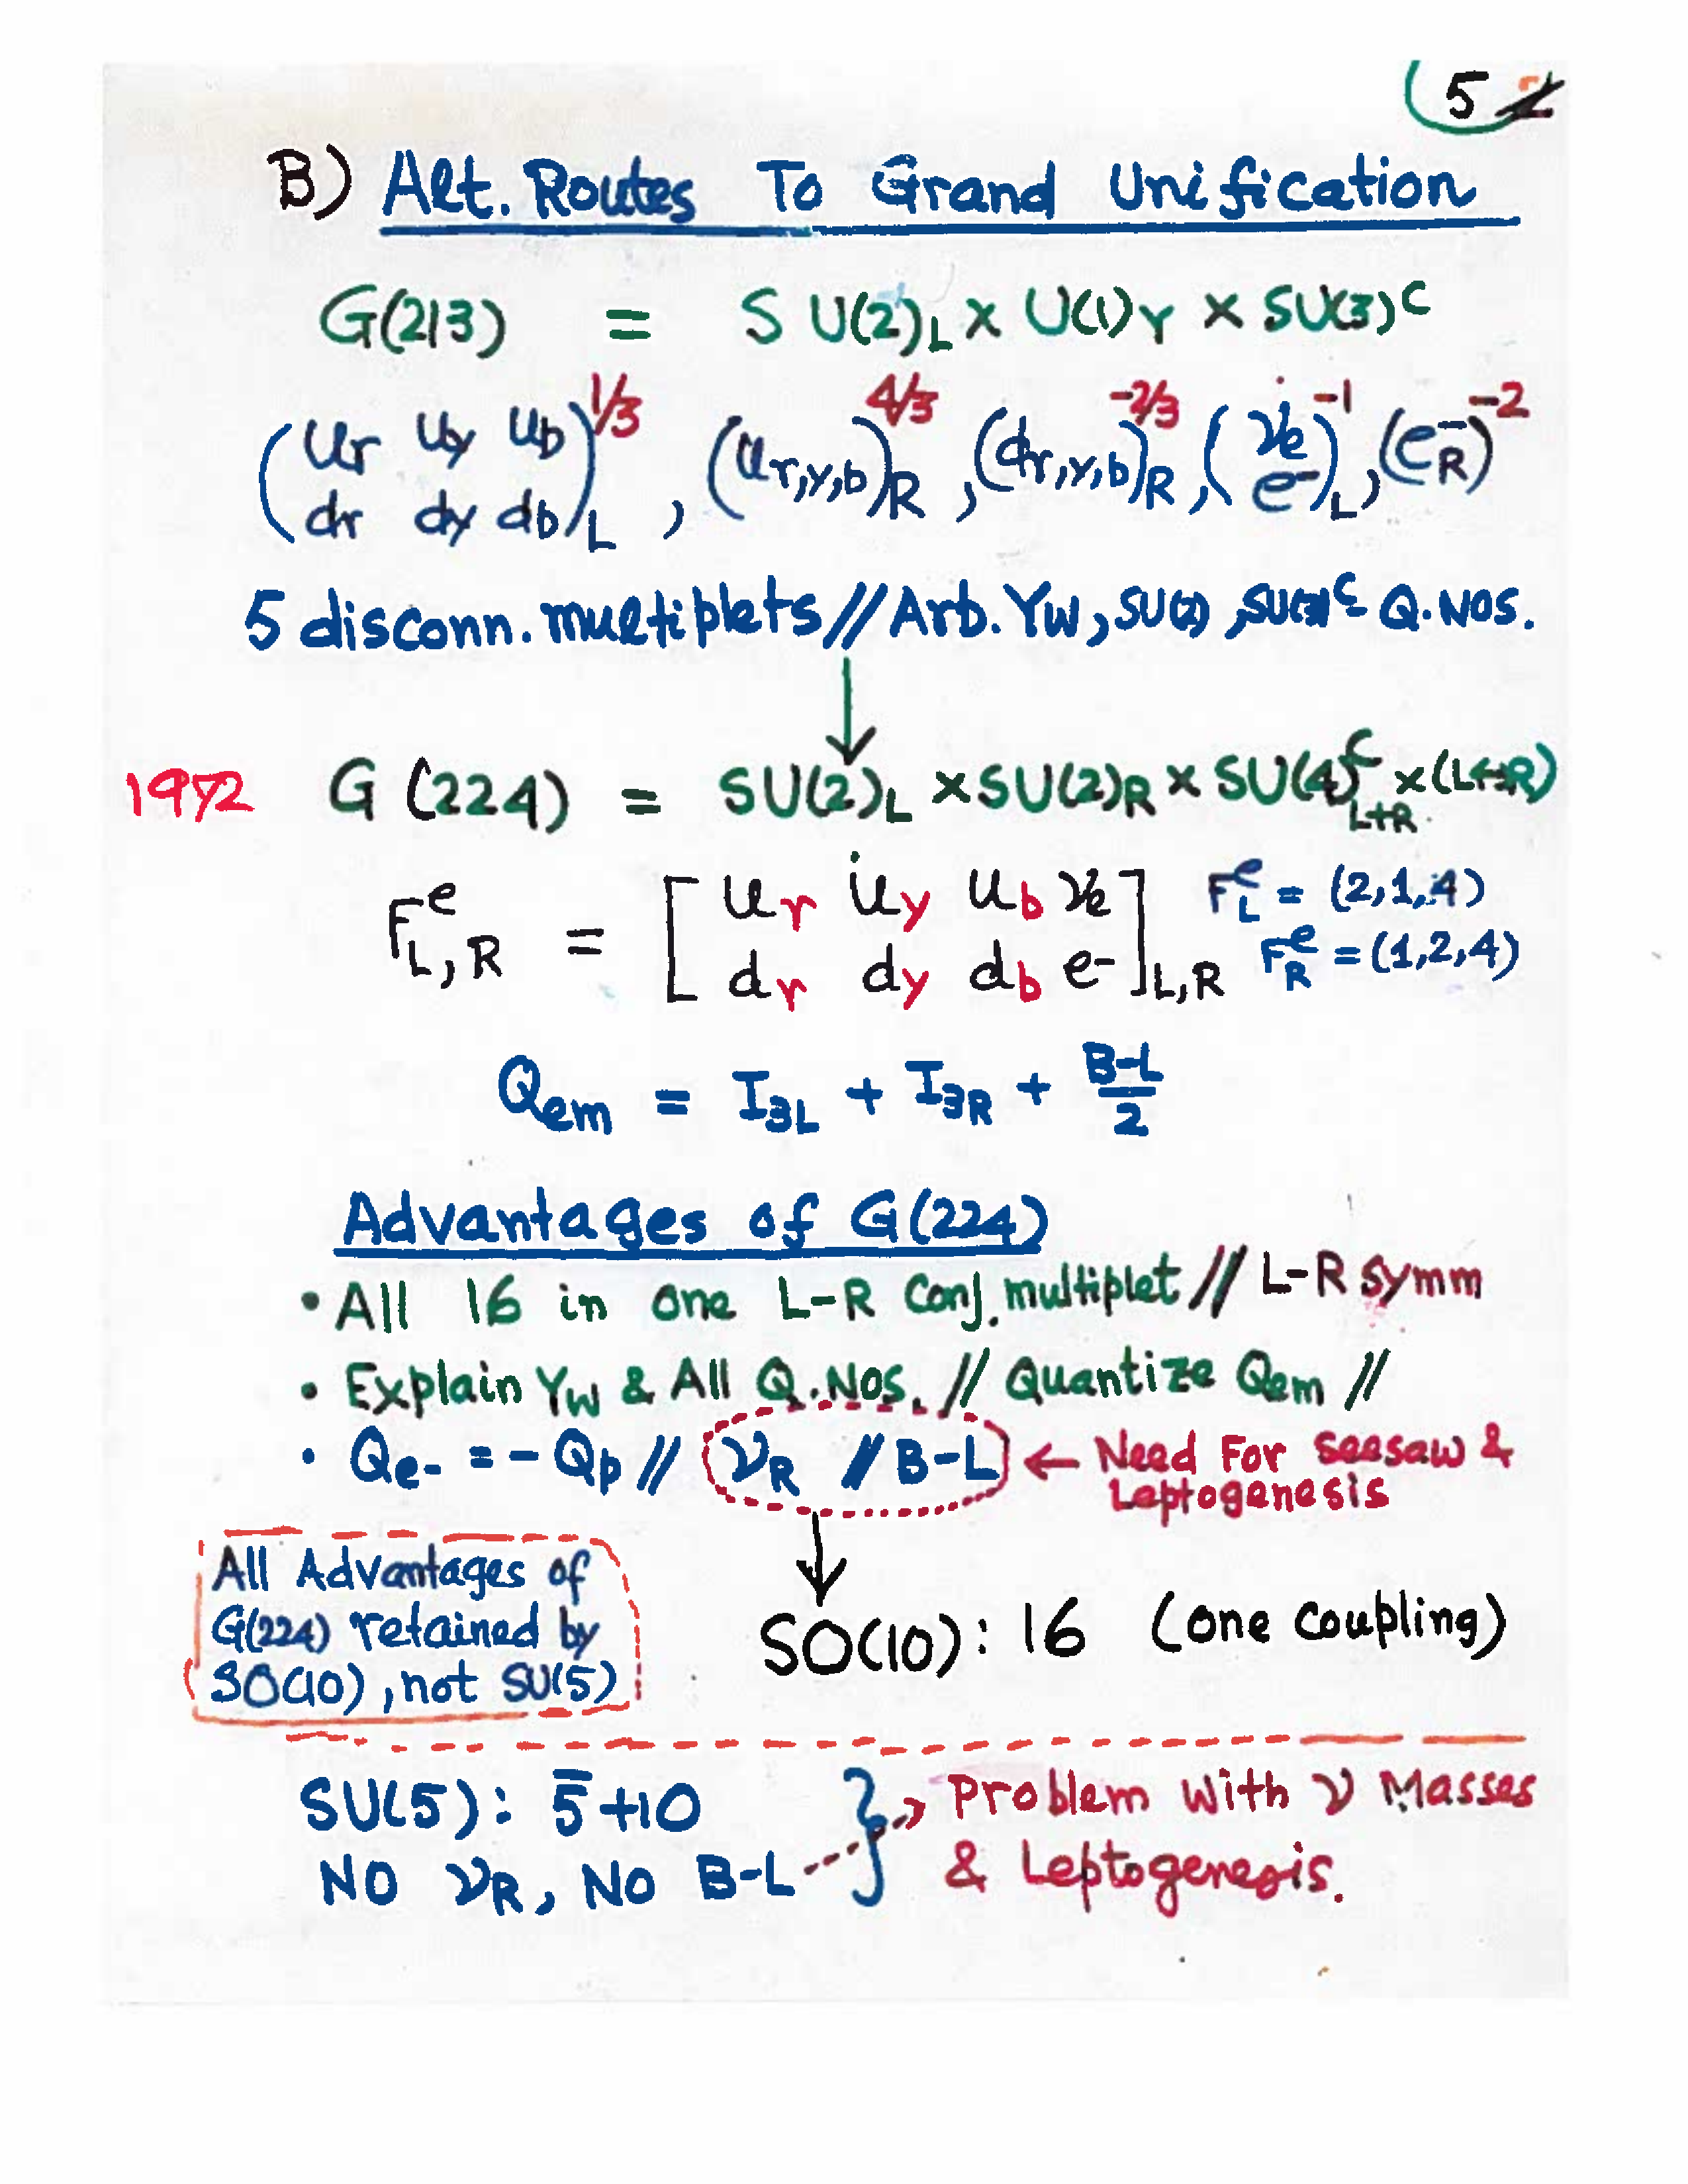 5
B) Alt. Routes To Grand Unification
G(213) = SU(2)_L × U(1)_Y × SU(3)^C
(u_r u_y u_b / d_r d_y d_b)_L^1/3, (u_r,y,b)_R^4/3, (d_r,y,b)_R^-2/3, (ν_e / e^-)_L^-1, (e^-_R)^-2
5 disconn. multiplets // Arb. Y_W, SU(2), SU(3)^C Q.Nos.
↓
1972 G(224) = SU(2)_L × SU(2)_R × SU(4)^C_L+R × (L↔R)
F^e_L,R = [u_r u_y u_b ν_e / d_r d_y d_b e^-]_L,R F^e_L = (2,1,4)
F^e_R = (1,2,4)
Q_em = I_3L + I_3R + B-L/2
Advantages of G(224)
• All 16 in one L-R Conj. multiplet // L-R Symm
• Explain Y_W & All Q.Nos. // Quantize Q_em //
• Q_e- = - Q_p // ν_R // B-L ← Need For Seesaw &
Leptogenesis
↓
All Advantages of
G(224) retained by
SO(10), not SU(5)
SO(10): 16 (one coupling)
SU(5): 5̄+10 } → Problem with ν Masses
NO ν_R, NO B-L & Leptogenesis.